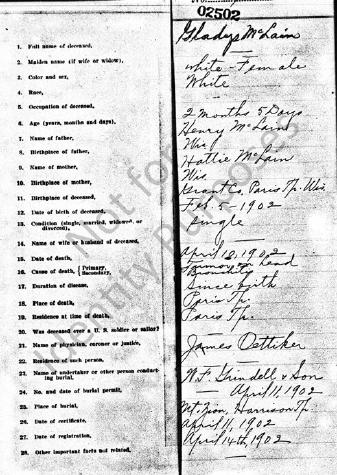 No.
02502
1. Full name of deceased, Gladys McLain
2. Maiden name (if wife or widow),
3. Color and sex, white - Female
4. Race, White
5. Occupation of deceased,
6. Age (years, months and days), 2 months 5 Days
7. Name of father, Henry McLain
8. Birthplace of father, Wis
9. Name of mother, Hattie McLain
10. Birthplace of mother, Wis
11. Birthplace of deceased, Grant Co, Paris Tp. Wis
12. Date of birth of deceased, Feb. 5 - 1902
13. Condition (single, married, widowed or divorced), Single
14. Name of wife or husband of deceased,
15. Date of death, April 1902
16. Cause of death, {Primary, Secondary, Tumor on head Bronchitis
17. Duration of disease, Since birth
18. Place of death, Paris Tp.
19. Residence at time of death, Paris Tp.
20. Was deceased ever a U. S. soldier or sailor?
21. Name of physician, coroner or justice, James Oettiker
22. Residence of such person,
23. Name of undertaker or other person conducting burial, W.F. Grindell & Son
24. No. and date of burial permit, April 11, 1902
25. Place of burial, Mt. Zion, Harrison Tp
26. Date of certificate, April 11, 1902
27. Date of registration, April 14th 1902
28. Other important facts not related,
Not for
identity purposes